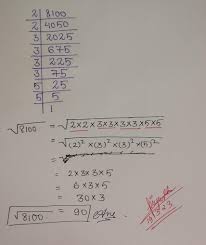 2 | 8100
2 | 4050
3 | 2025
3 | 675
3 | 225
3 | 75
5 | 25
5 | 5
1
√8100 = √2×2×3×3×3×3×5×5
= √(2)²×(3)²×(3)²×(5)²
=
= 2×3×3×5
= 6×3×5
= 30×3
√8100 = 90